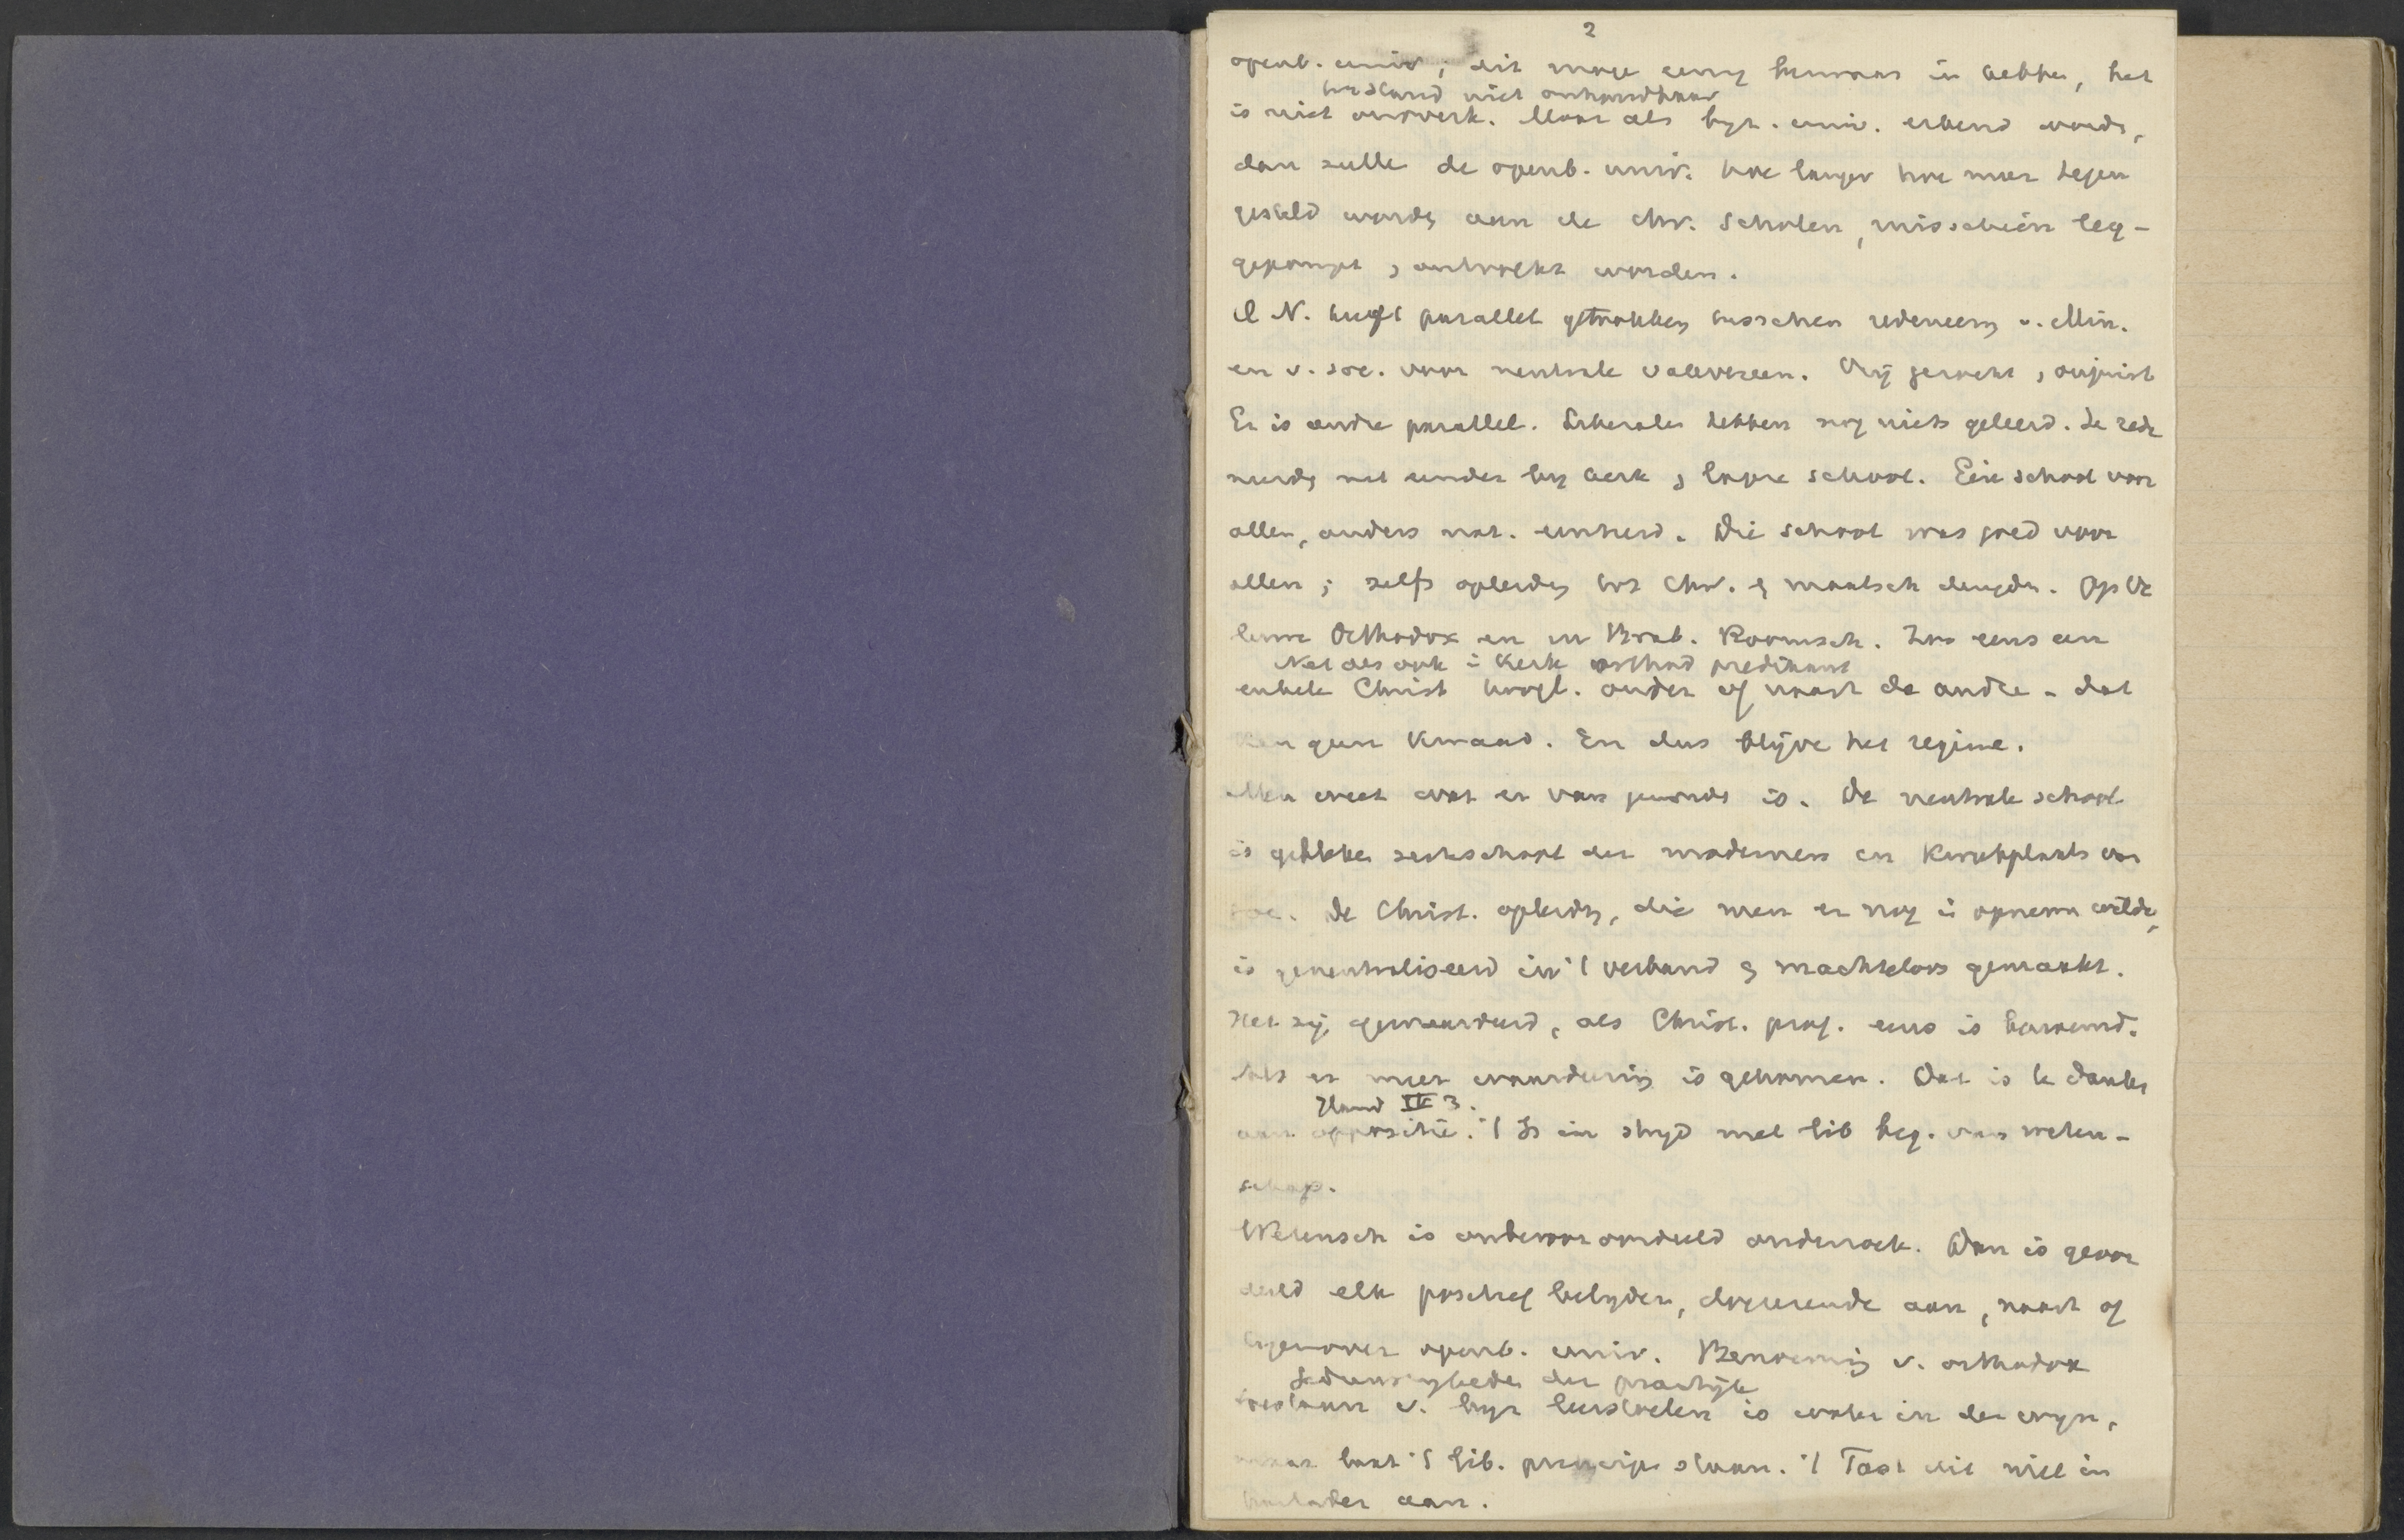 2
openb. univ; dit moge eenig humors in hebben, het
toestand niet onhoudbaar
is niet onswerk. Maar als byz. univ. erkend wordt,
dan zulle de openb. univ. hoe langer hoe meer tegen
gesteld worden aan de chr. scholen, misschien leeg-
gepompt, ontvolkt worden.
d N. heeft parallel getrokken tusschen redeneering v. Min.
en v. soc. voor neutrale vakvereen. Vrij gezocht, onjuist
Er is andre parallel. Liberalen hebben nog niets geleerd. de rede
neerden net eender by kerk & lagere school. Eén school voor
allen, anders nat. eenheid. Die school was goed voor
allen; zelfs opleiding tot Chr. & maatsch deugden. Op Ve
luwe Orthodox en in Brab. Roomsch. Zoo eens een
Net als ook i Kerk orthod predikant
enkele Christ hoogl. onder of naast de andre - dat
kan geen kwaad. En dus blijve het regime.
Men weet wat er van geworden is. De neutrale school
is gebleken secteschool der modernen en kweekplaats van
soc. De Christ. opleiding, die men er nog i opnemen wilde,
is geneutraliseerd in 't verband & machteloos gemaakt.
Het zij gewaardeerd, als Christ. prof. eens is benoemd.
Als er meer waardeering is gekomen. Dat is te danken
Hand II 3.
aan oppositie. 't Is in stryd met lib beg. van weten-
schap.
Wetensch is onbevooroordeeld onderzoek. Dan is geoor
deeld elk positief belyden, doceerende aan, naast of
tegenover openb. univ. Benoeming v. orthodox
der practijk
toestaan v. byz leerstoelen is water in den wyn,
maar laat 't lib. principe staan. 't Tast dit niet in
aan.